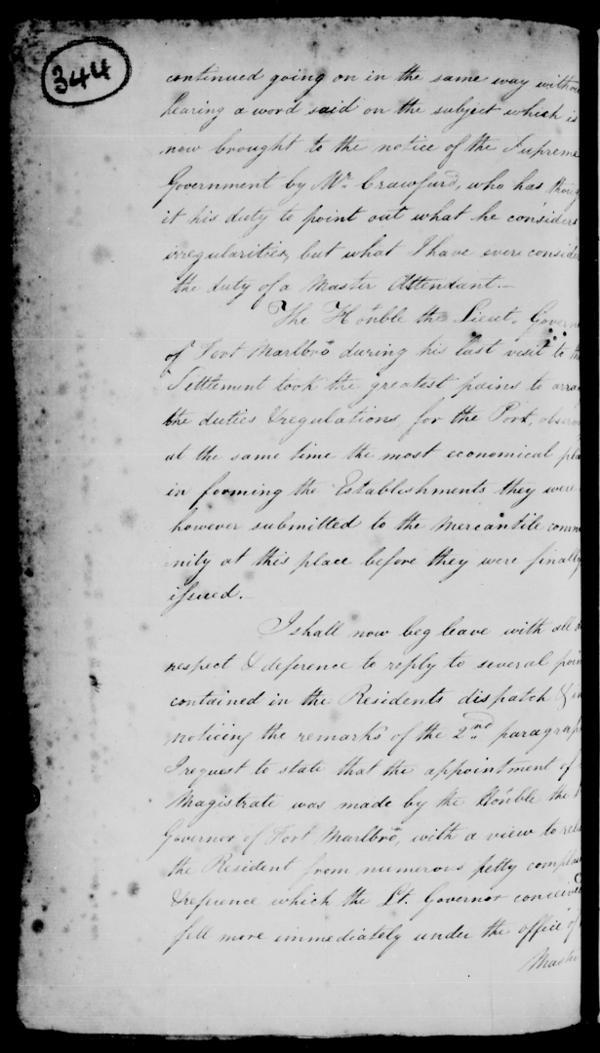 344
continued going on in the same way witho
hearing a word said on the subject which is
now brought to the notice of the Supreme
Government by Mr. Crawfurd, who has thoug
it his duty to point out what he considers
irregularities, but what I have ever conside
the duty of a Master Attendant.—
The Honble the Lieut. Govern
of Fort Marlbro during his last visit to th
Settlement took the greatest pains to arra
the duties & regulations, for the Port, observ
at the same time the most economical pla
in forming the Establishments they were
however submitted to the Mercantile comm
nity at this place before they were finally
issued.—
I shall now beg leave with all d
respect & deference to reply to several poin
contained in the Residents dispatch & in
noticing the remarks of the 2nd paragrap
I request to state that the appointment of
Magistrate was made by the Honble the
Governor of Fort Marlbro, with a view to rel
the Resident from numerous petty compla
& refrence which the Lt. Governor conceived
fell more immediately under the office of
Maste